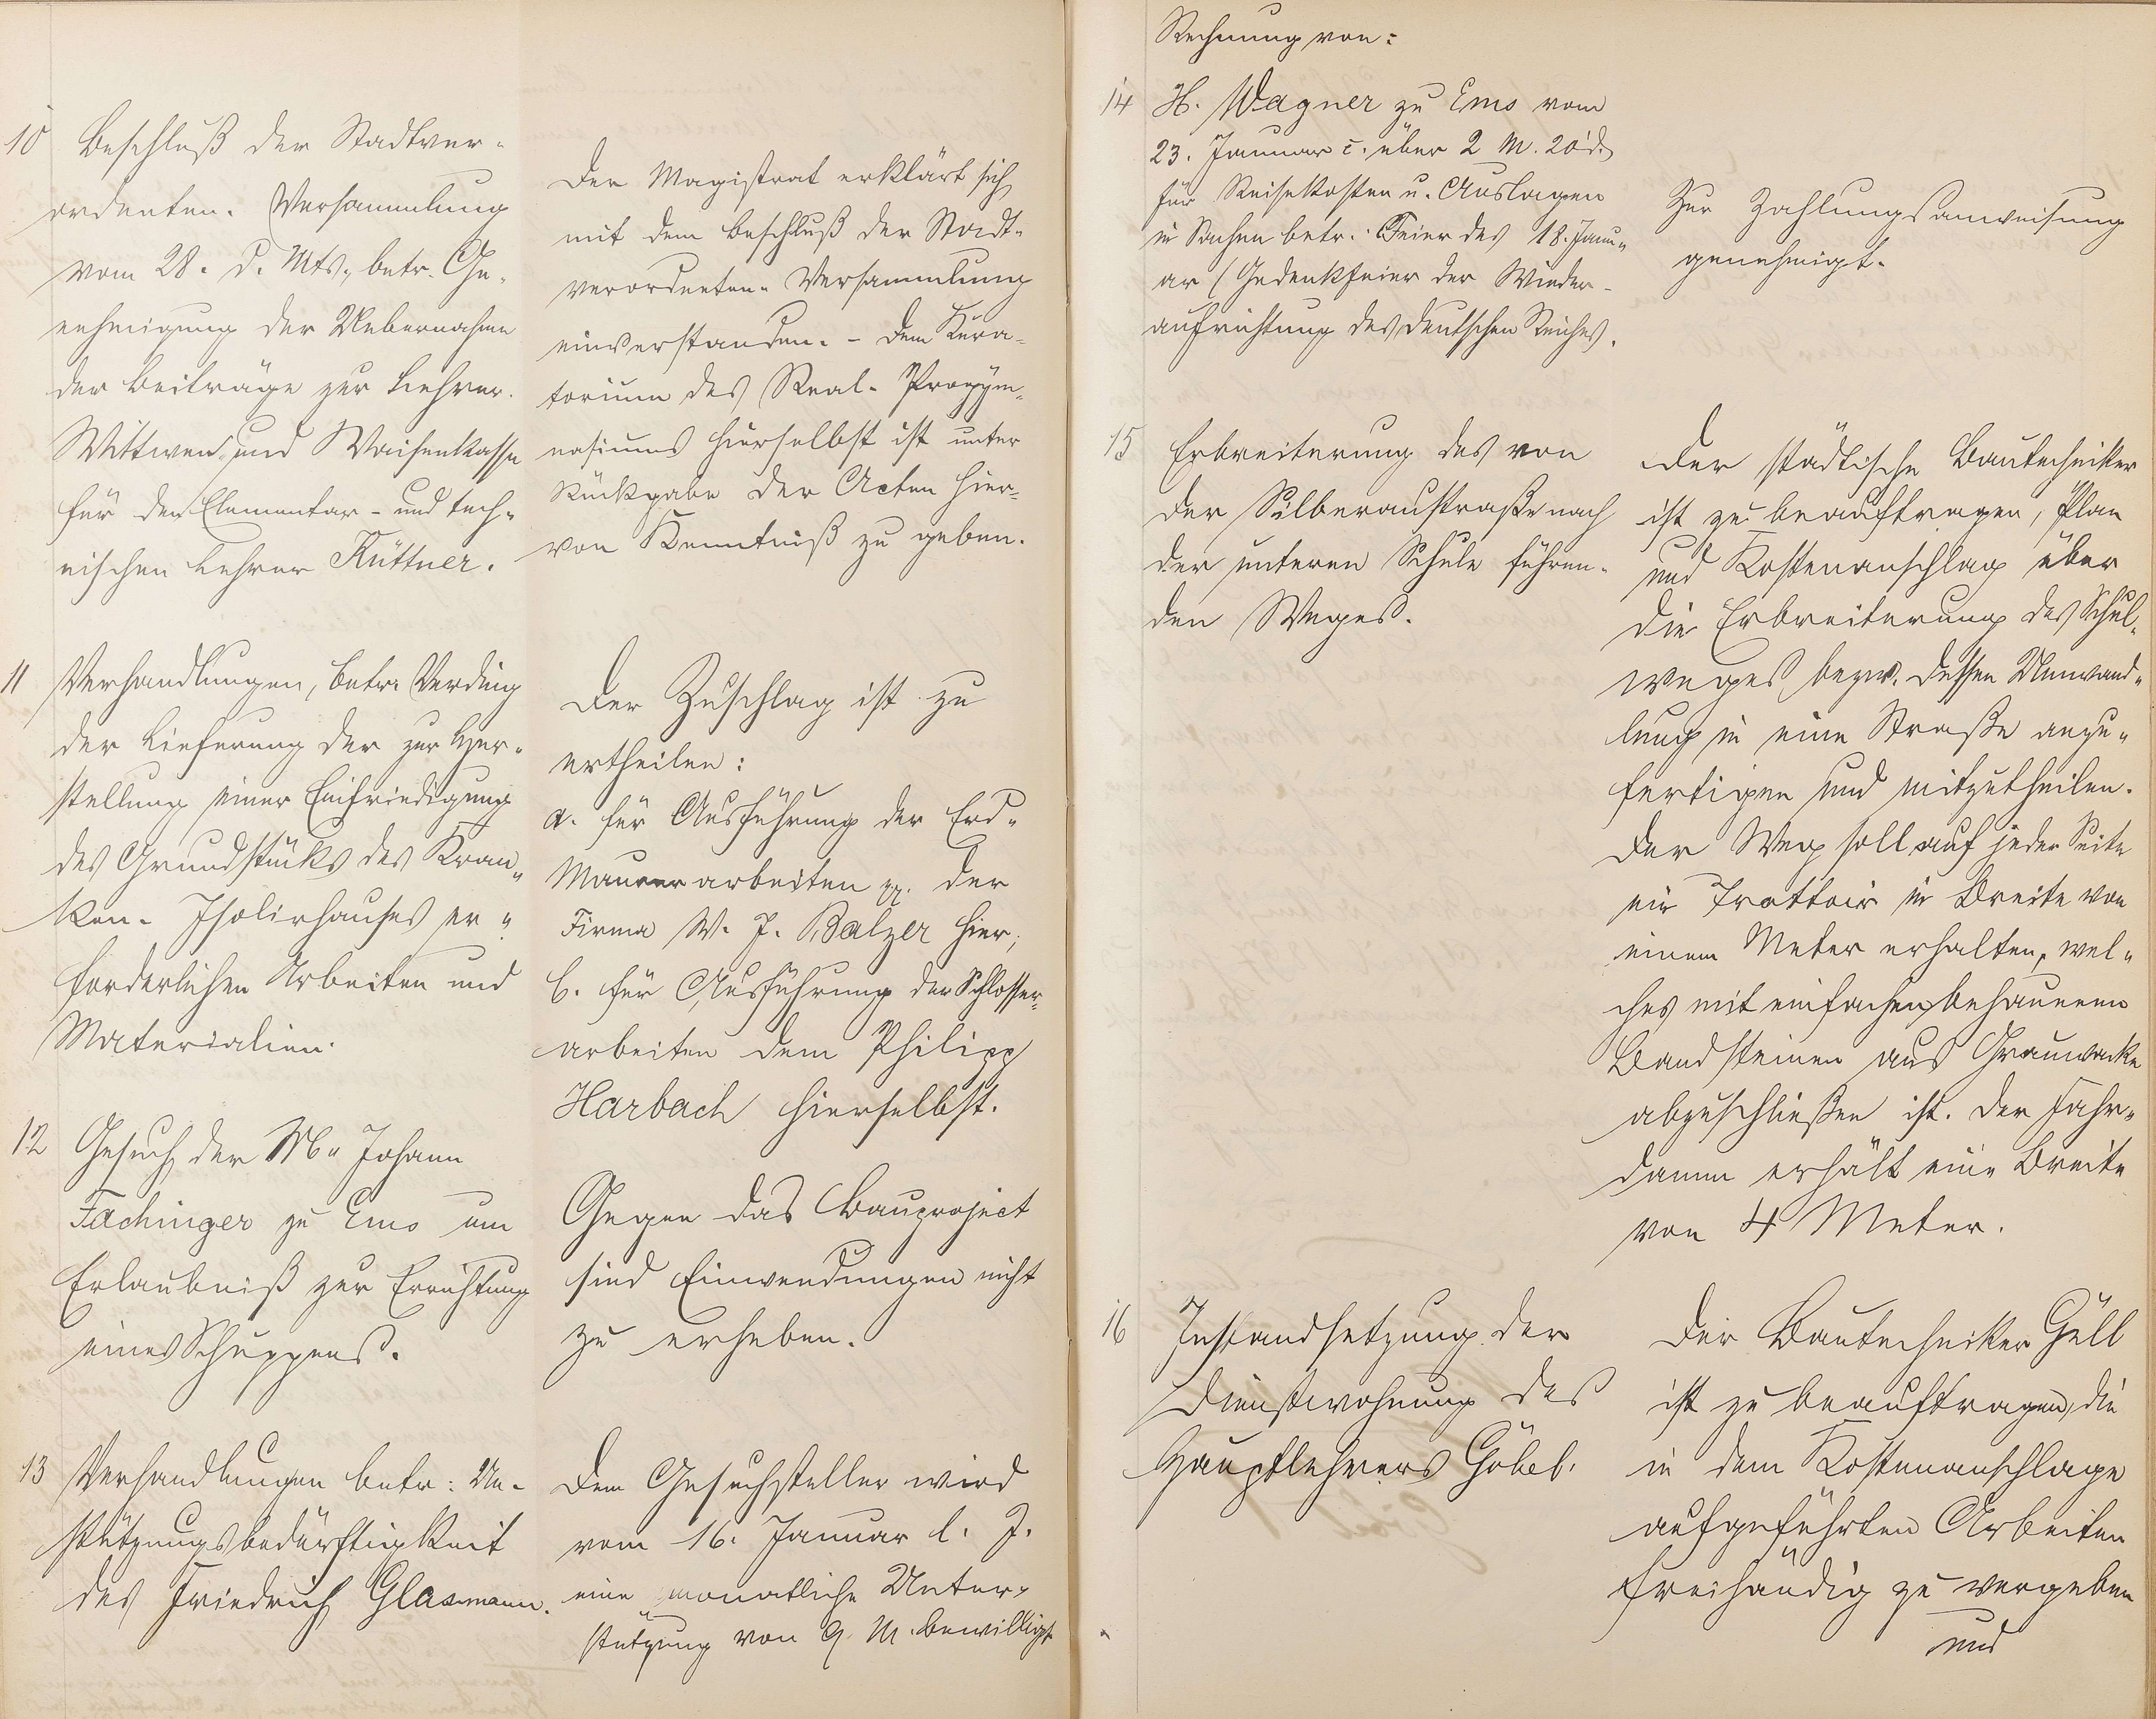 10
Beschluß der Stadtver-
ordneten-Versammlung
vom 28. d. Mts., betr. Ge-
nehmigung der Uebernahme
der Beiträge zur Lehrer-
Wittwen- und Waisenkasse
für den Elementar- und tech-
nischen Lehrer Küttner.
Der Magistrat erklärt sich
mit dem Beschluß der Stadt-
verordneten-Versammlung
einverstanden. - Dem Kura-
torium des Real-Progym-
nasiums hierselbst ist unter
Rückgabe der Acten hier-
von Kenntniß zu geben.
11
Verhandlungen, betr. Verding
der Lieferung der zur Her-
stellung einer Einfriedigung
des Grundstücks des Kran-
ken-Isolirhauses er-
forderlichen Arbeiten und
Materialien.
Der Zuschlag ist zu
ertheilen:
a. für Ausführung der Erd-
Maurerarbeiten pp. der
Firma W. J. Balzer hier;
b. für Ausführung der Schlosser-
arbeiten dem Philipp
Harbach hierselbst.
12
Gesuch der Johann
Fachinger zu Ems um
Erlaubniß zur Errichtung
eines Schuppens.
Gegen das Bauproject
sind Einwendungen nicht
zu erheben.
13
Verhandlungen betr: Un-
stützungsbedürftigkeit
des Friedrich Glasmann.
Dem Gesuchsteller wird
vom 16. Januar l. J.
eine monatliche Unter-
stützung von 9 M. bewilligt
Rechnung von:
14
H. Wagner zu Ems vom
23. Januar c. über 2 M. 20 d.
für Reisekosten u. Auslagen
in Sachen betr. Feier des 18. Janu-
ar (Gedenkfeier der Wieder-
aufrichtung des deutschen Reiches.
Zur Zahlungsanweisung
genehmigt.
15
Erbreiterung des von
der Silberaustraße nach
der unteren Schule führen-
den Weges.
Der städtische Bautechniker
ist zu beauftragen, Plan
und Kostenanschlag über
die Erbreiterung des Schul-
weges bezw. dessen Umwand-
lung in eine Straße anzu-
fertigen und mitzutheilen.
Der Weg soll auf jeder Seite
ein Trottoir in Breite von
einem Meter erhalten, wel-
ches mit einfachen behauenen
Bandsteinen aus Grauwacke
abzuschließen ist. Der Fahr-
damm erhält eine Breite
von 4 Meter.
16
Instandsetzung der
Dienstwohnung des
Hauptlehrers Göbel.
Der Bautechniker Güll
ist zu beauftragen, die
in dem Kostenanschlage
aufgeführten Arbeiten
freihändig zu vergeben
und